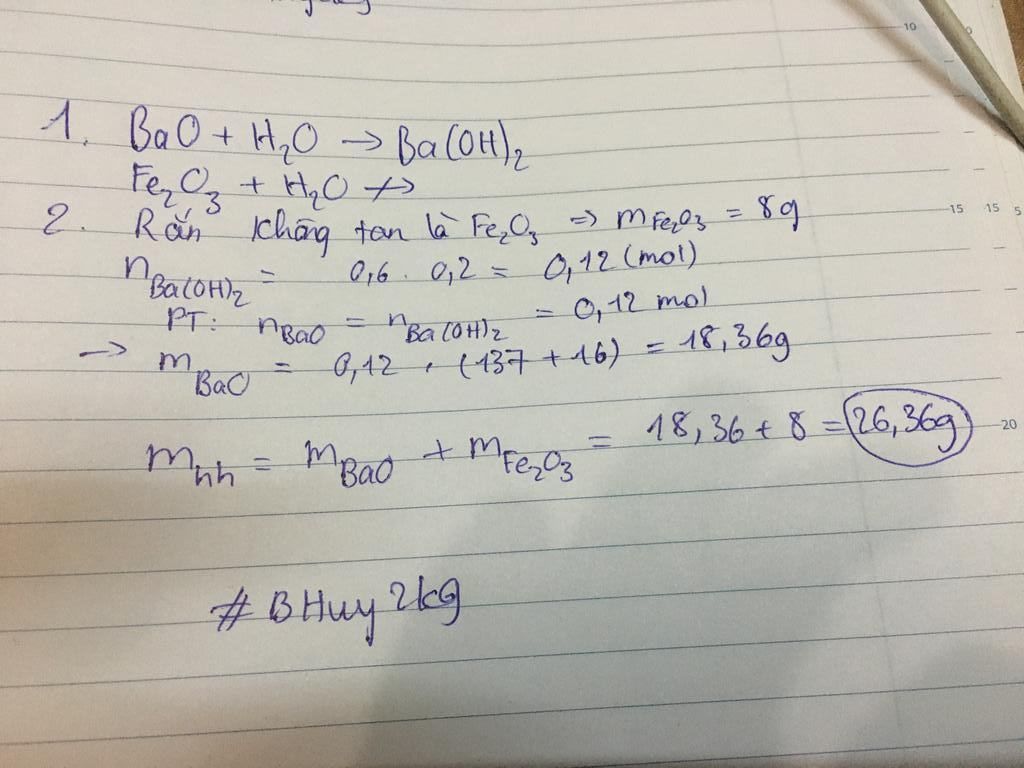 1. BaO + H₂O → Ba(OH)₂
Fe₂O₃ + H₂O ↛
2. Rắn không tan là Fe₂O₃ ⇒ mFe₂O₃ = 8g
nBa(OH)₂ = 0,6 . 0,2 = 0,12 (mol)
PT: nBaO = nBa(OH)₂ = 0,12 mol
→ mBaO = 0,12 . (137 + 16) = 18,36g
mhh = mBaO + mFe₂O₃ = 18,36 + 8 = 26,36g
# BHuy2kg
10
15 15 5
20